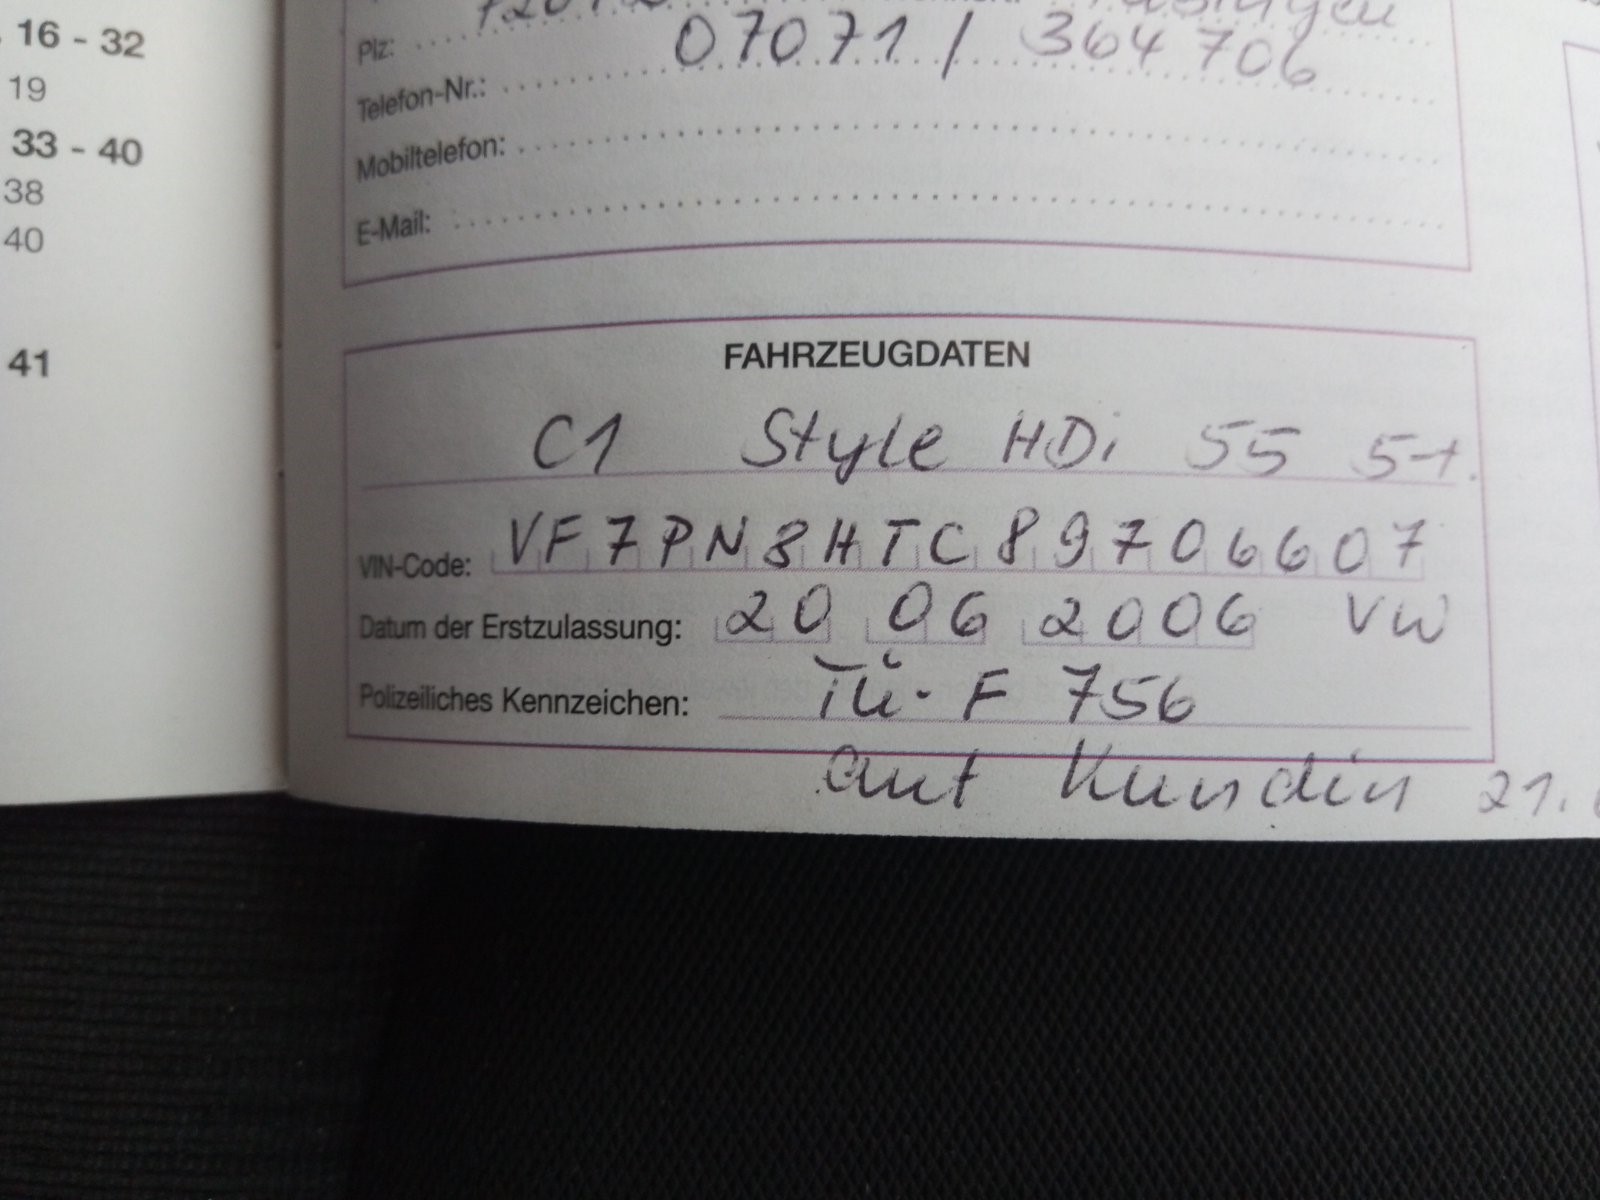 16 - 32
19
33 - 40
38
40
41
Plz:
Telefon-Nr.: 07071 / 364706
Mobiltelefon:
E-Mail:
FAHRZEUGDATEN
C1 Style HDi 55 5-t.
VIN-Code: VF7PN8HTC89706607
Datum der Erstzulassung: 20 06 2006 VW
Polizeiliches Kennzeichen: TÜ - F 756
Kundin 21.